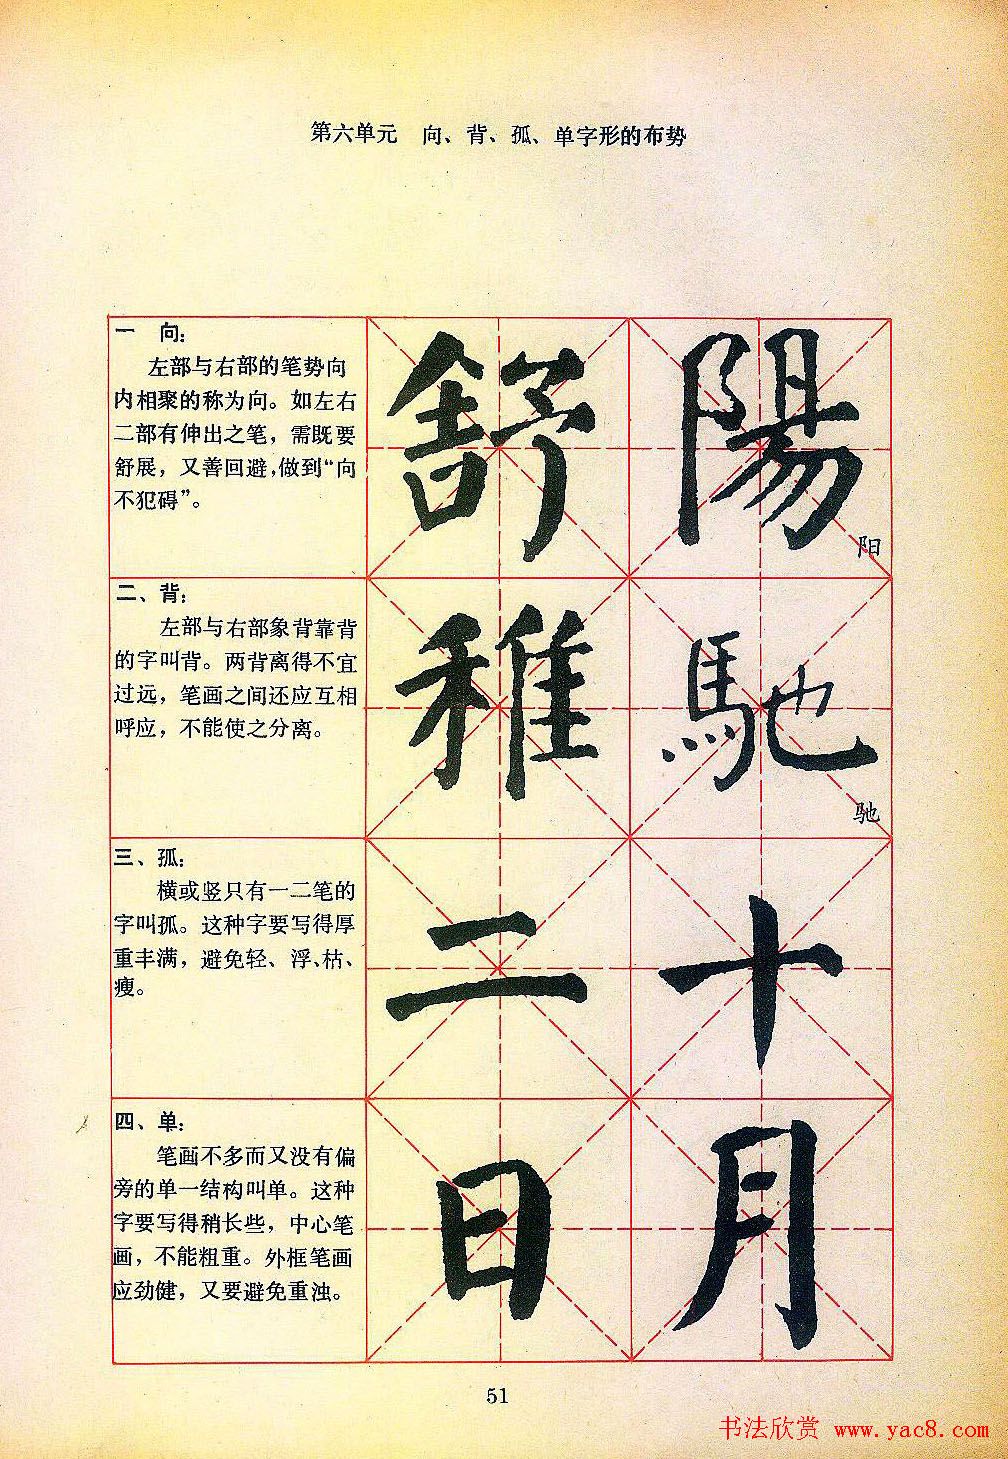 第六单元　向、背、孤、单字形的布势
一　向：
左部与右部的笔势向
内相聚的称为向。如左右
二部有伸出之笔，需既要
舒展，又善回避，做到“向
不犯碍”。
舒 陽
阳
二、背：
左部与右部象背靠背
的字叫背。两背离得不宜
过远，笔画之间还应互相
呼应，不能使之分离。
稚 馳
驰
三、孤：
横或竖只有一二笔的
字叫孤。这种字要写得厚
重丰满，避免轻、浮、枯、
瘦。
二 十
四、单：
笔画不多而又没有偏
旁的单一结构叫单。这种
字要写得稍长些，中心笔
画，不能粗重。外框笔画
应劲健，又要避免重浊。
日 月
51
书法欣赏 www.yac8.com